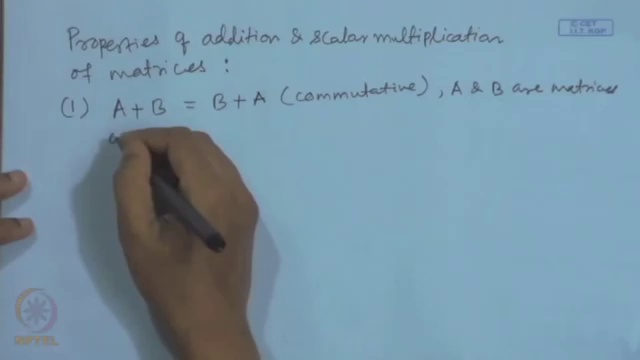 Properties of addition & scalar multiplication
of matrices :
(1) A + B = B + A (commutative), A & B are matrices
© CET
I.I.T. KGP
NPTEL